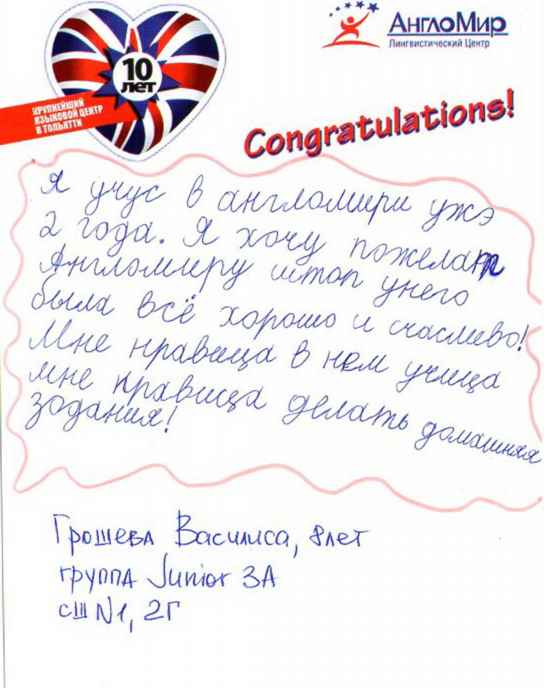 10
ЛЕТ
КРУПНЕЙШИЙ
ЯЗЫКОВОЙ ЦЕНТР
В ТОЛЬЯТТИ
АнглоМир
Лингвистический Центр
Congratulations!
Я учус в англомири ужэ
2 года. Я хочу пожелат
Англомиру штоп унего
была всё хорошо и счаслиево!
Мне нравица в нём учица
мне нравица делать домашняя
зодания!
Грошева Василиса, 8 лет
группа Junior 3A
сш N1, 2Г